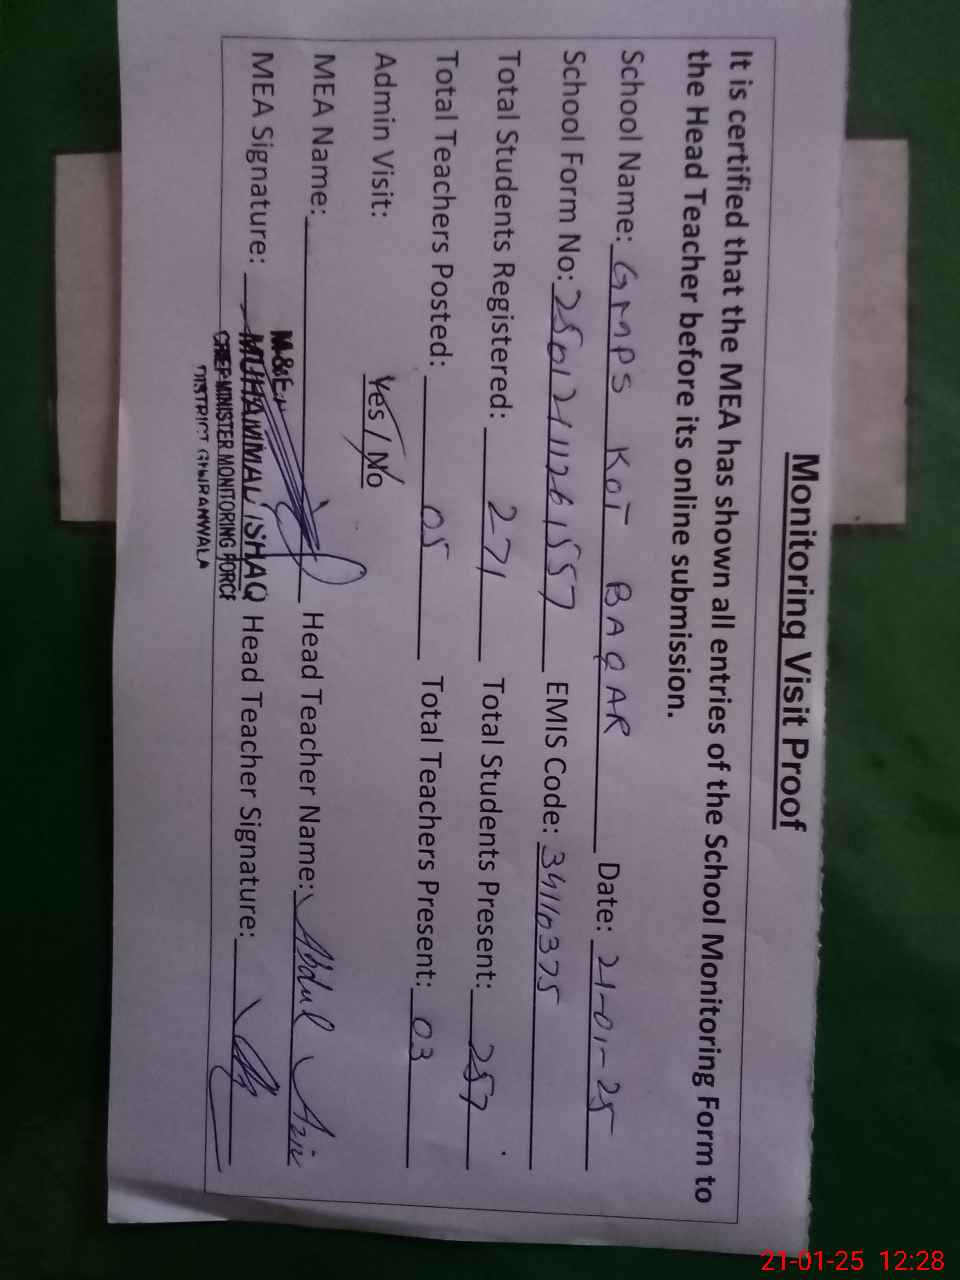 Monitoring Visit Proof
It is certified that the MEA has shown all entries of the School Monitoring Form to
the Head Teacher before its online submission.
School Name: GMPS KOT BAQAR Date: 21-01-25
School Form No: EMIS Code: 34110375
Total Students Registered: 271 Total Students Present: 257
Total Teachers Posted: 05 Total Teachers Present: 03
Admin Visit: Yes / No
MEA Name: Head Teacher Name: Abdul Aziz
MEA Signature: Head Teacher Signature:
MUHAMMAD ISHAQ
CHIEF MINISTER MONITORING FORCE
DISTRICT GUJRANWALA
21-01-25 12:28